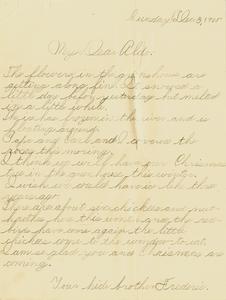 Sunday, Dec 3, 1905
My Dear Aldo.
The flowers in the greenhouse are
getting along fine. It snowed a
little day before yesterday but melted
in a little while.
The ice has frozen in the river and is
floating around.
Papa and Carl and I
this morning.
I think we will have our Christmas
tree in the green house this winter.
I wish we could have it like three
years ago.
There are about six chickadees and nut-
hatches here this winter and
have come again the little
chickadees come to the window to eat.
I am so glad you and Christmas are
coming.
Your little brother Frederic.